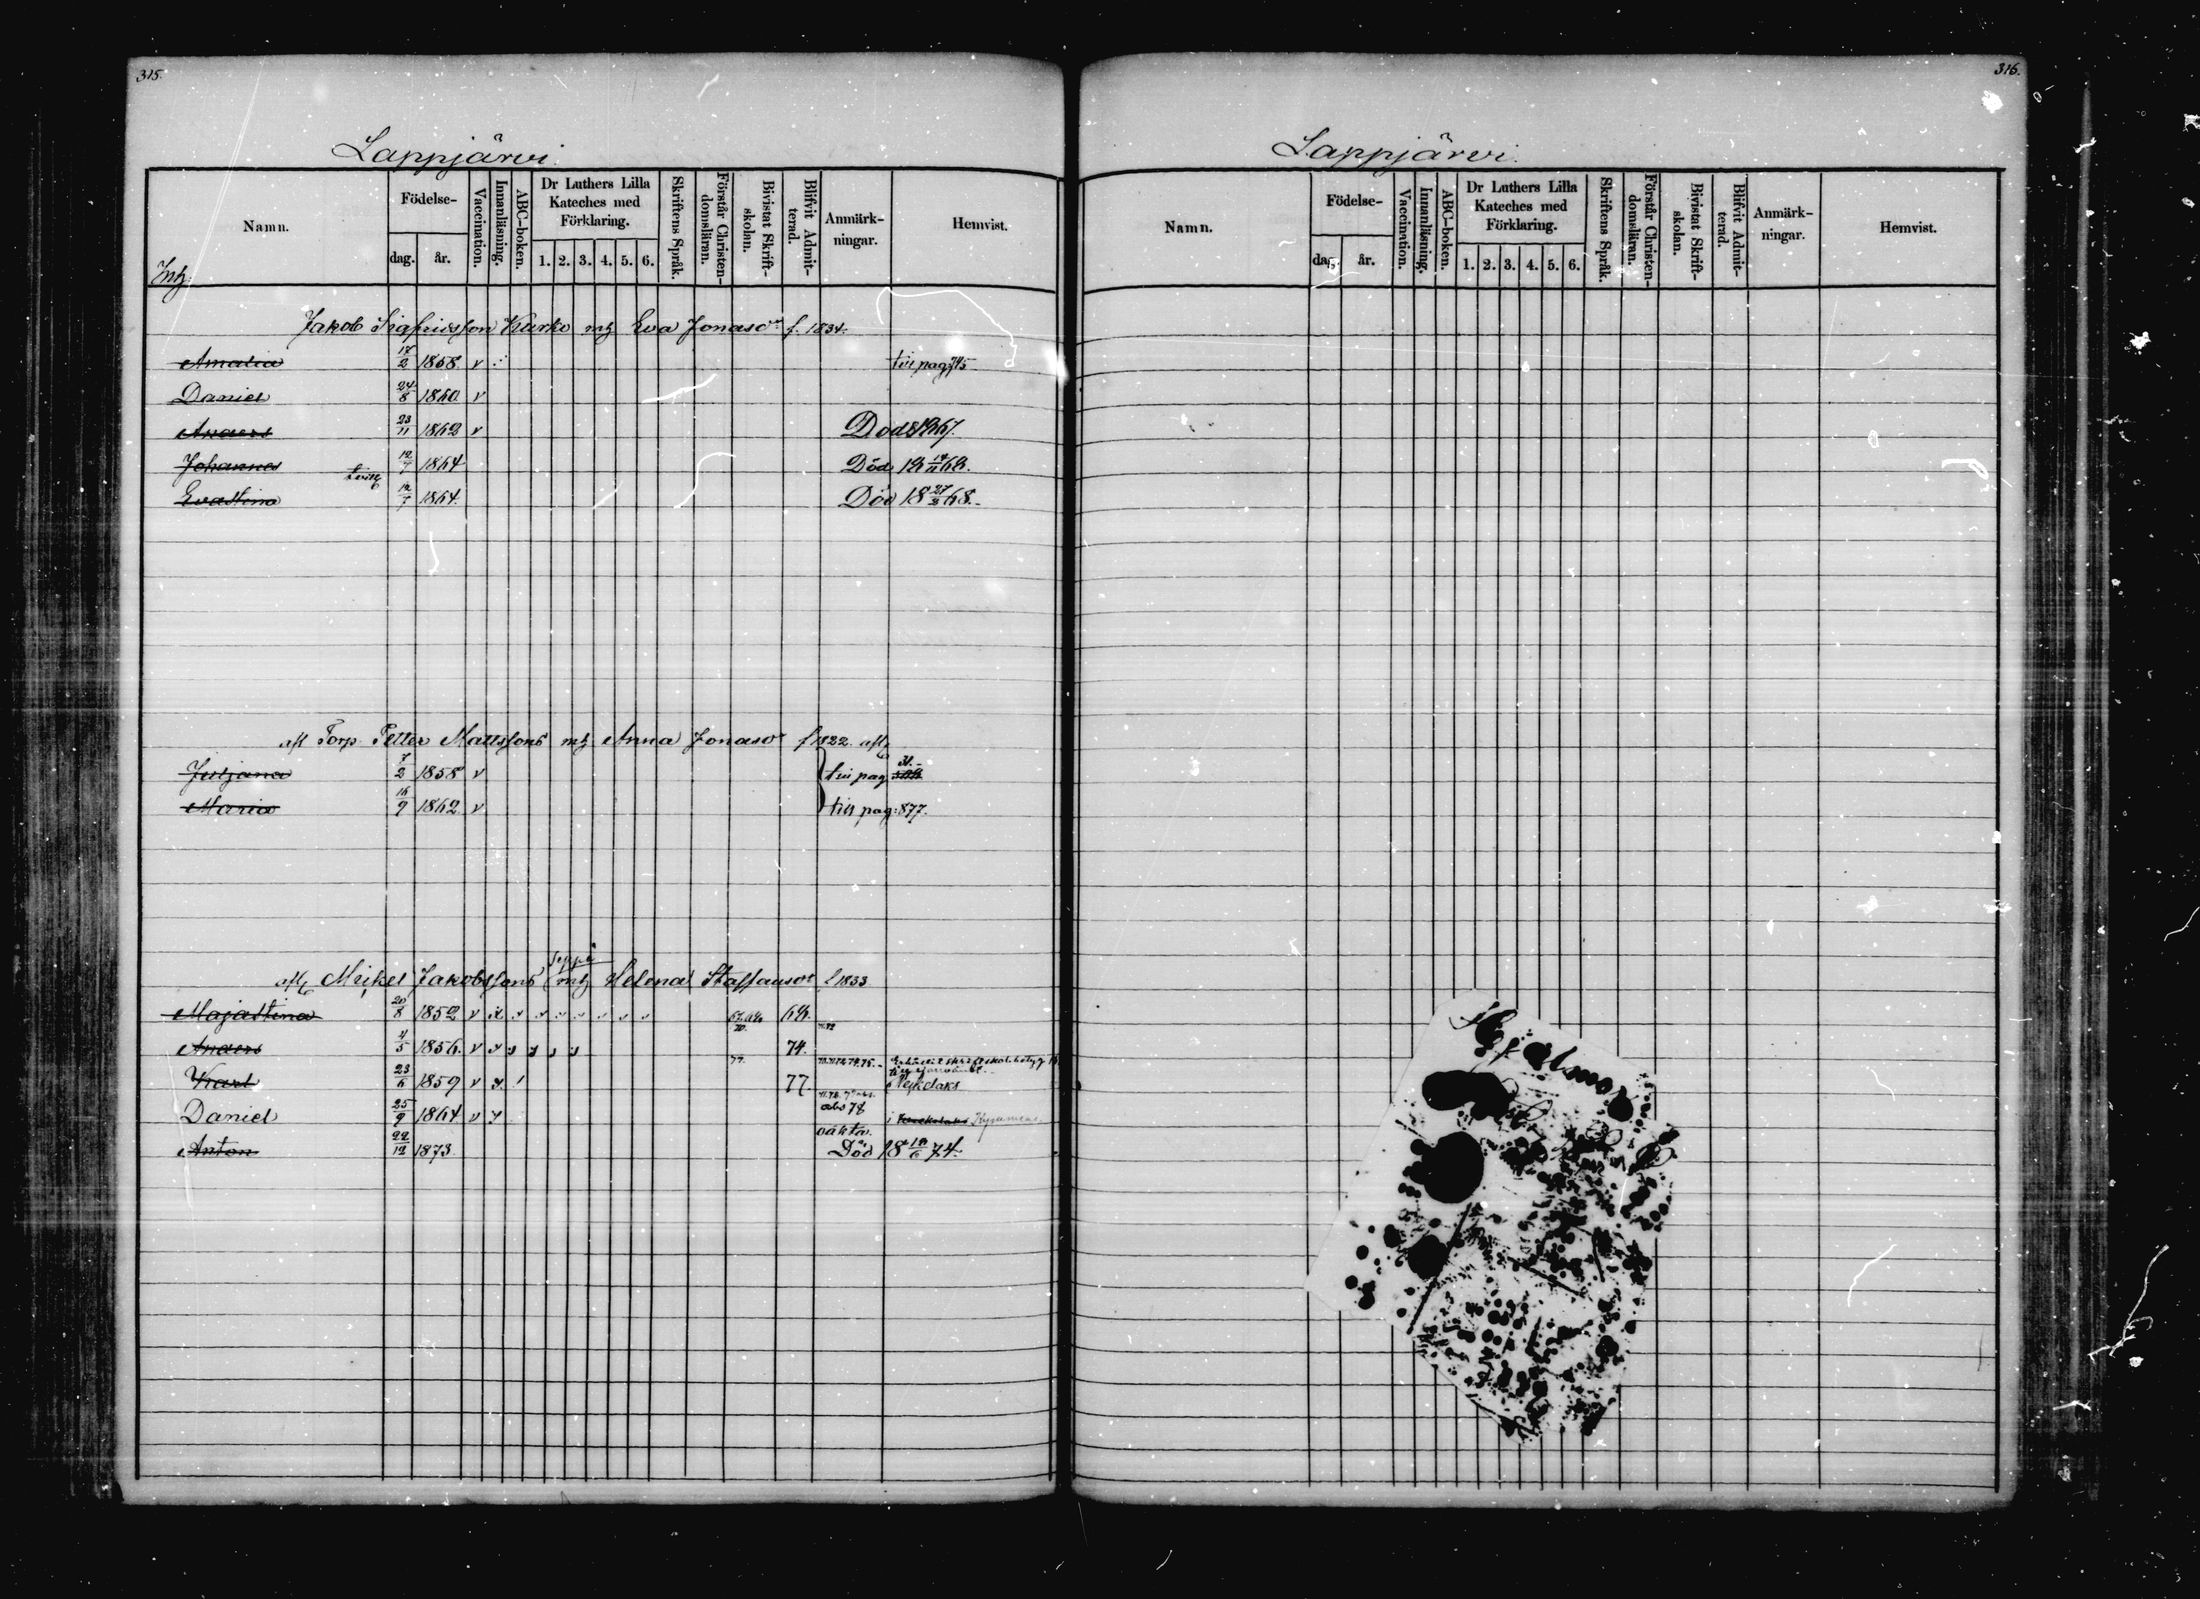 315.
Lappjärvi.
Namn.
Födelse-
dag.
år.
Vaccination.
Innanläsning.
ABC-boken.
Dr Luthers Lilla
Kateches med
Förklaring.
1. 2. 3. 4. 5. 6.
Skriftens Språk.
Förstår Christen-
domsläran.
Bivistat Skrift-
skolan.
Blifvit Admit-
terad.
Anmärk-
ningar.
Hemvist.
Jakob Sigfridsson Kurko Eva Jonasdr f. 1834.
Amalia 17/2 1858. v till pag 745
Daniel 24/8 1860. v
Anders 23/11 1862 v Död 1867.
Johannes 12/7 1864 Död
Evastina 12/7 1864. Död 18 27/2 68.
Torp. Petter Mattssons Anna Jonasdr f 1822.
Juljana 7/2 1858 v till pag
Maria 16/9 1862 v till pag: 877.
Seppä
Mickel Jakobssons Helena Staffansdr f. 1833
Majastina 20/8 1852 v 68.
Anders 4/5 1856. v 74.
77.
Karl 23/6 1859 v 77.
Daniel 25/9 1864 v
Anton 22/12 1873 Död 74.
316.
Lappjärvi.
Namn.
Födelse-
dag.
år.
Vaccination.
Innanläsning.
ABC-boken.
Dr Luthers Lilla
Kateches med
Förklaring.
1. 2. 3. 4. 5. 6.
Skriftens Språk.
Förstår Christen-
domsläran.
Bivistat Skrift-
skolan.
Blifvit Admit-
terad.
Anmärk-
ningar.
Hemvist.